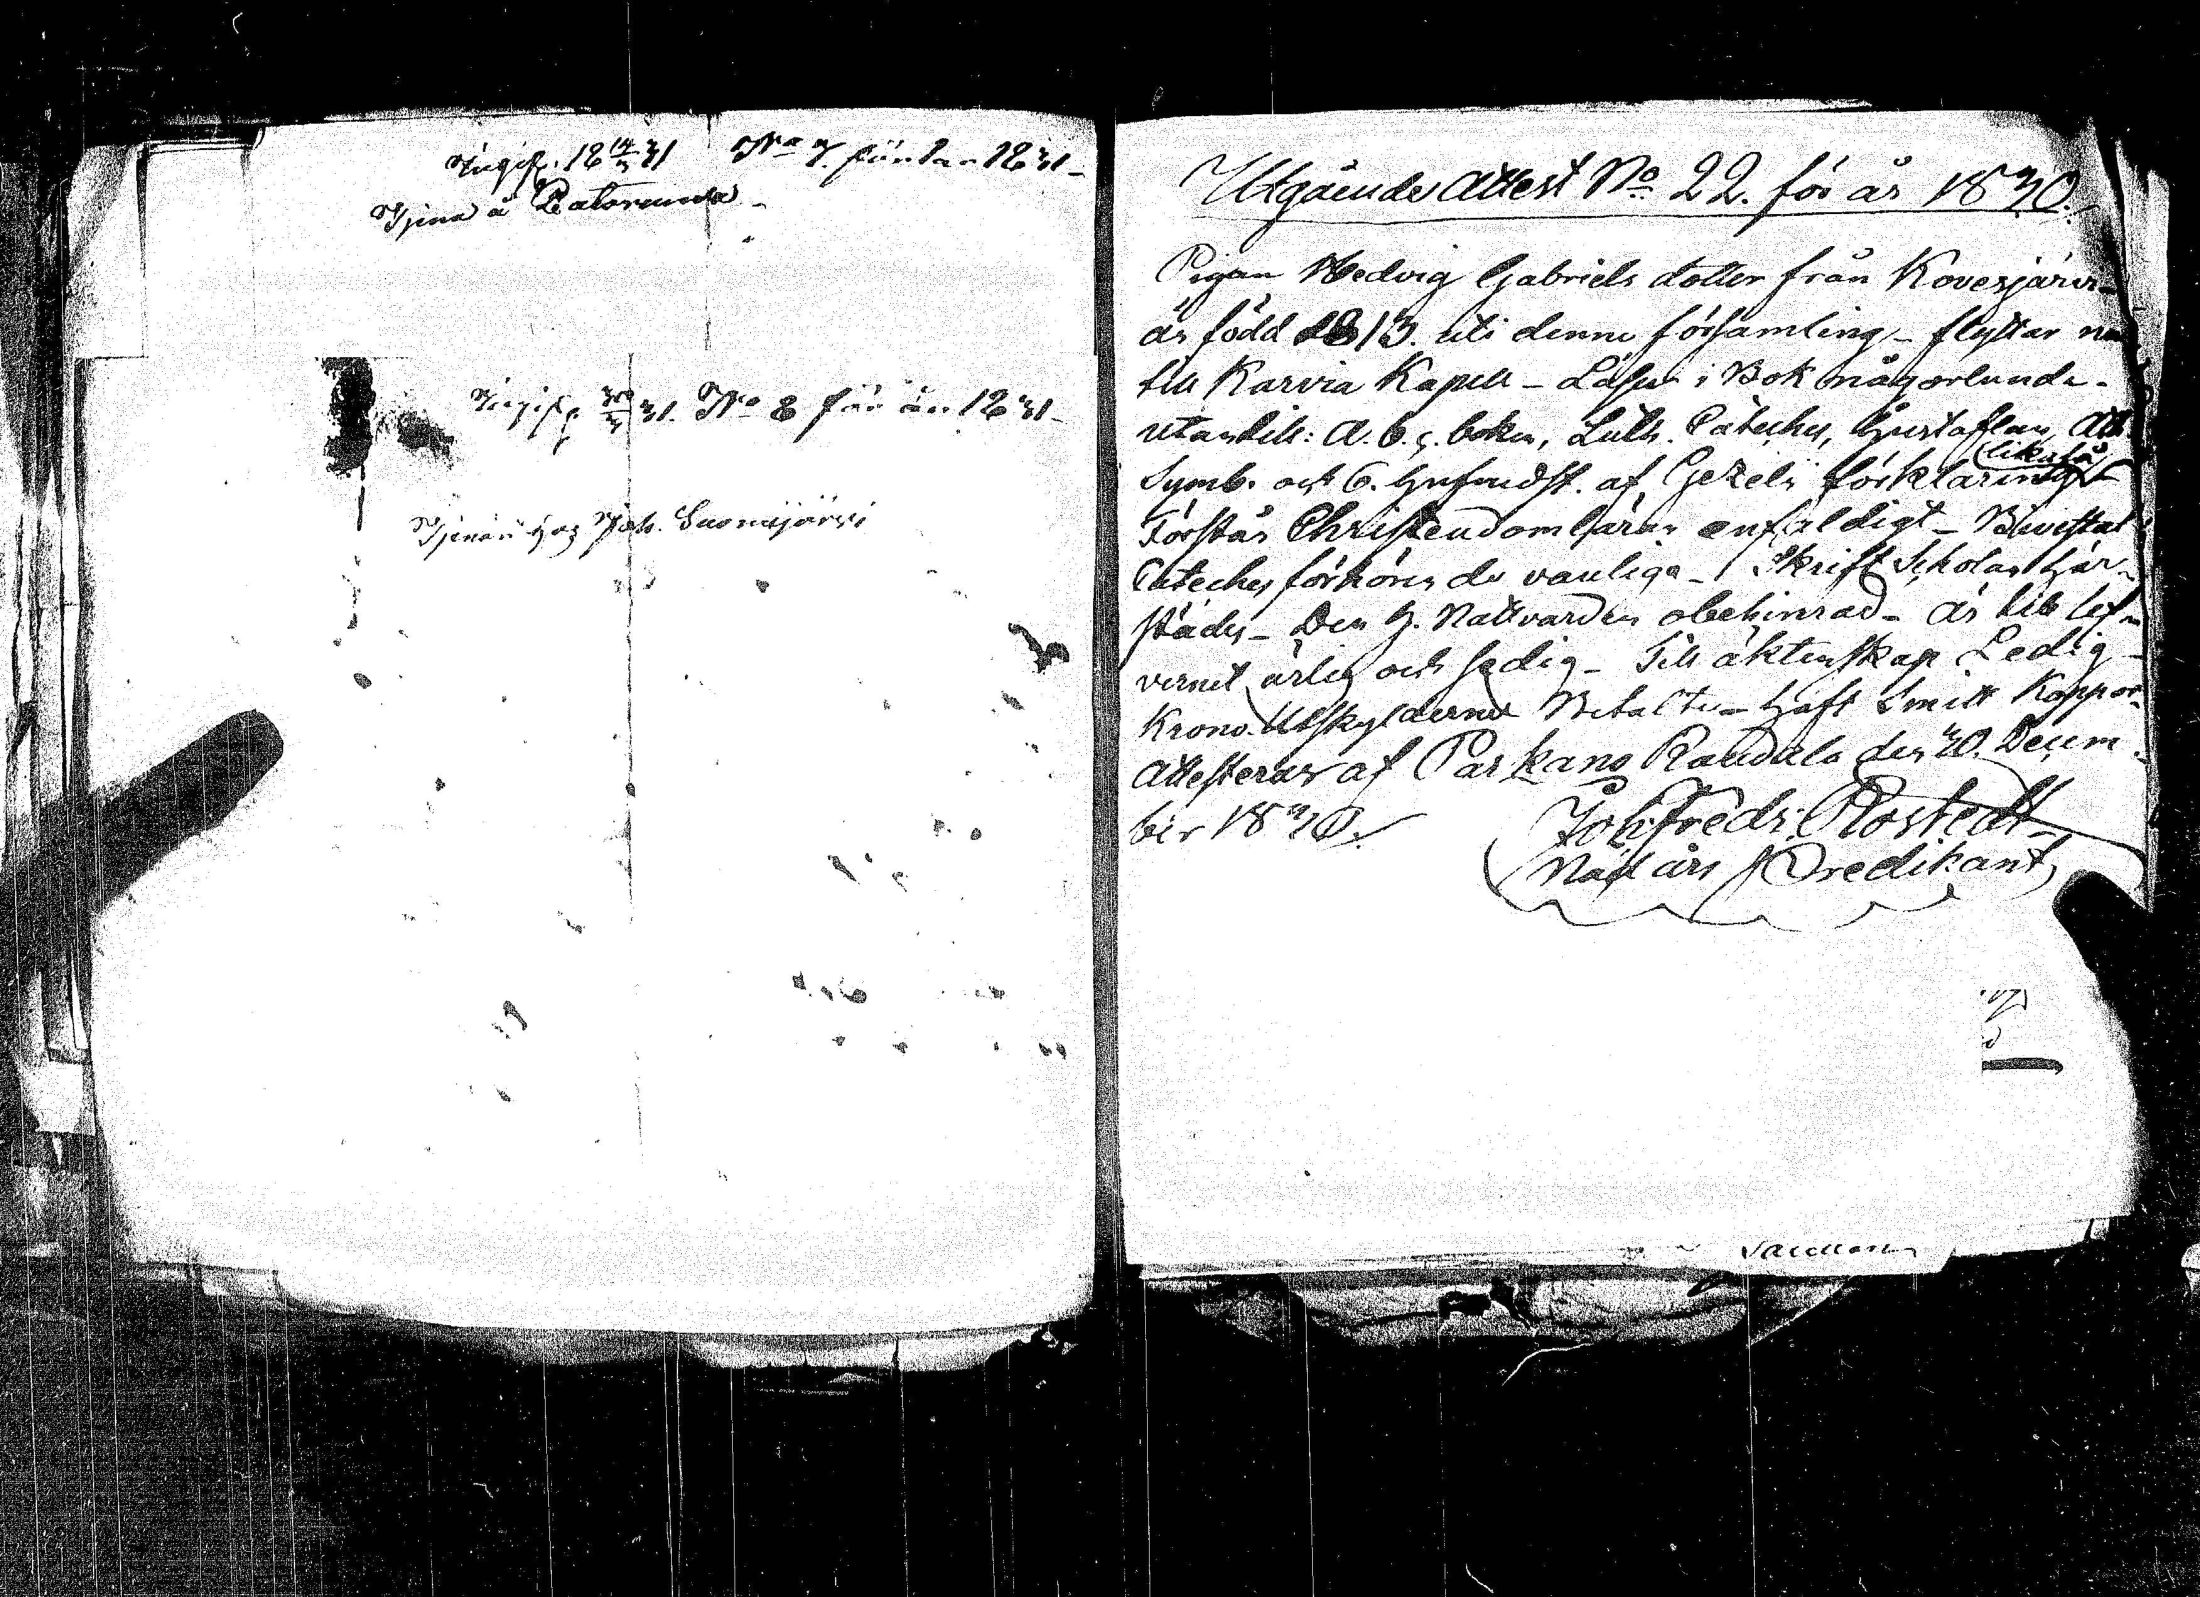 Ingif. 18 14/3 31 No 7. för år 1831 -
Tjena å Patoranda -
Ingif. 30/3 31. No 8 för år 1831 -
Tjenar hos Joh. Suomijärvi
Utgående Attest No 22. för år 1830.
Pigan Hedvig Gabriels dotter från Kovesjärvi -
är född 1813. uti denne församling - flyttar nu
till Karvia Kapell - Läser i Bok någorlunda -
utantill: A. b. c. boken, Luth. Cateches, Hustaflan, Ath.
Symb. och 6. hufvudst. af Gezelii förklaring likaså -
Förstår Christendomsläran enfaldigt - Bivistat
Cateches förhören de vanliga - Skrift Scholan här -
städes - Den H. Nattvarden obehindrad - är till lef -
vernet ärlig och sedig - Till äktenskap Ledig -
Krono Utskylderne Betalte - haft Smitt Koppor -
Attesteras af Parkano Raudala den 30. Decem -
ber 1830.
Joh. Fredr. Rostedt
Nådårs Predikant